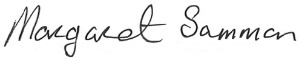 Margaret Samman